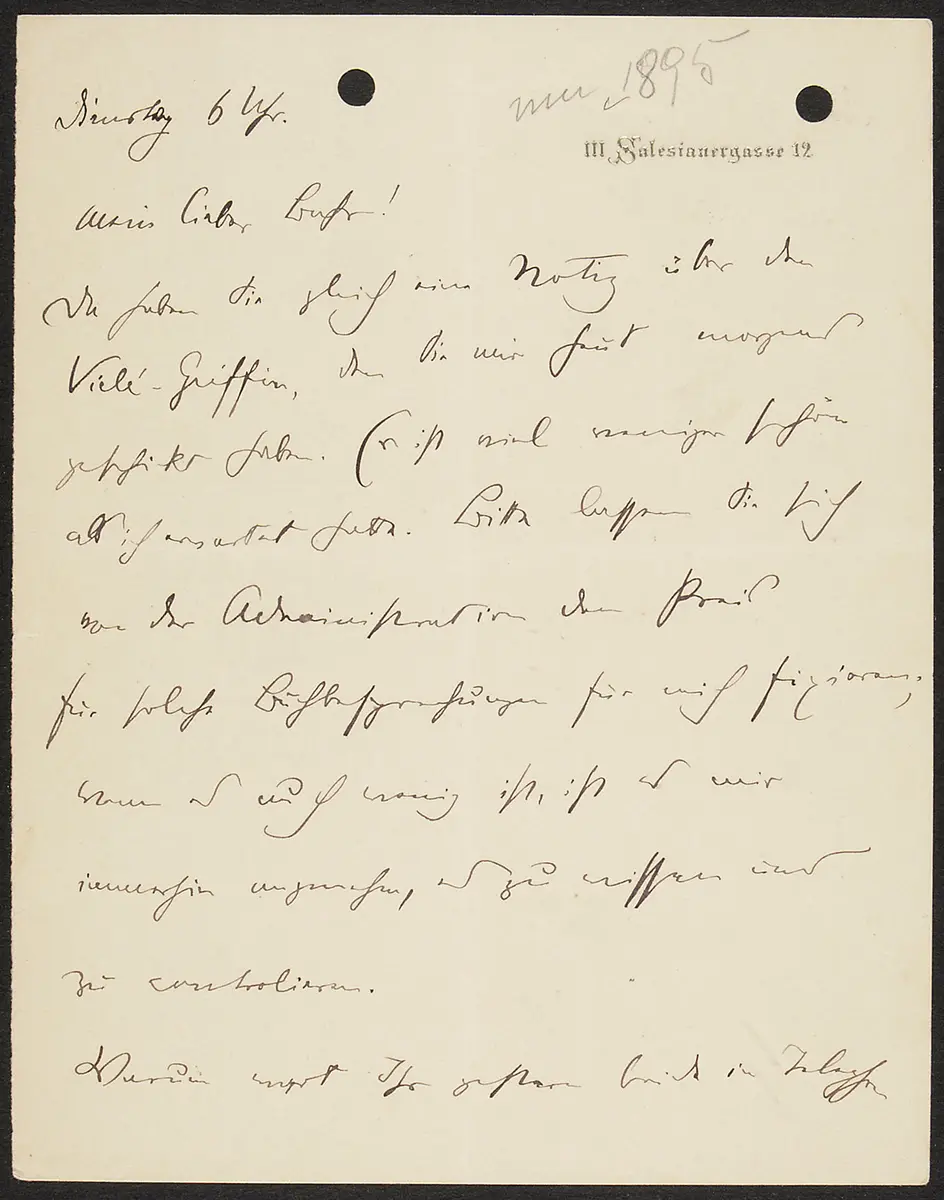 Dienstag 6 Uhr.
1895
III Salesianergasse 12
mein lieber Bahr!
Da haben Sie gleich eine Notiz über den
Vielé-Griffin, den Sie mir heut morgens
geschickt haben. Er ist viel weniger schön
als ich erwartet hatte. Bitte lassen Sie sich
von der Administration den Preis
für solche Buchbesprechungen für mich fixieren;
wenn es auch wenig ist, ist es mir
immerhin angenehm, es zu wissen und
zu controlieren.
Warum wart Ihr gestern beide in